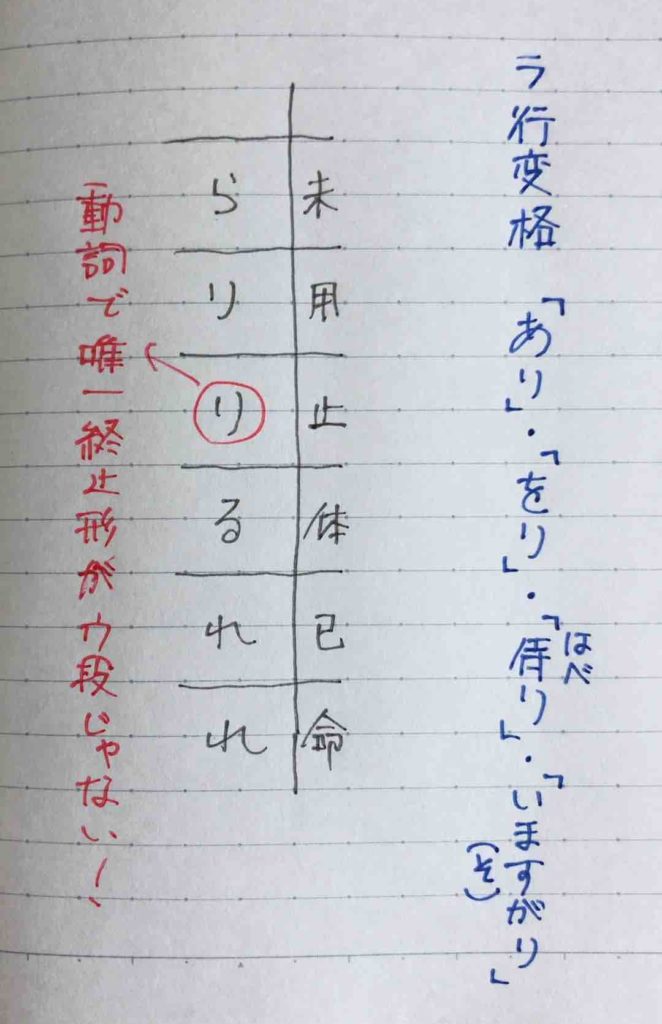 ラ行変格 「あり」・「をり」・「侍り」・「いますがり」
はべ
(そ)
未 用 止 体 已 命
ら り り る れ れ
動詞で唯一終止形がウ段じゃない！